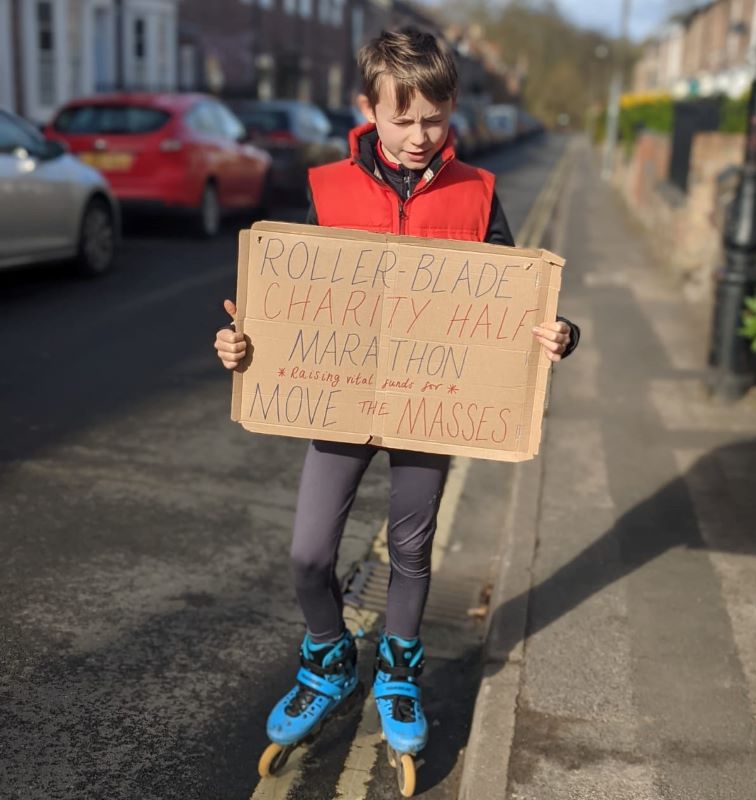 ROLLER-BLADE
CHARITY HALF
MARATHON
* Raising vital funds for *
MOVE THE MASSES